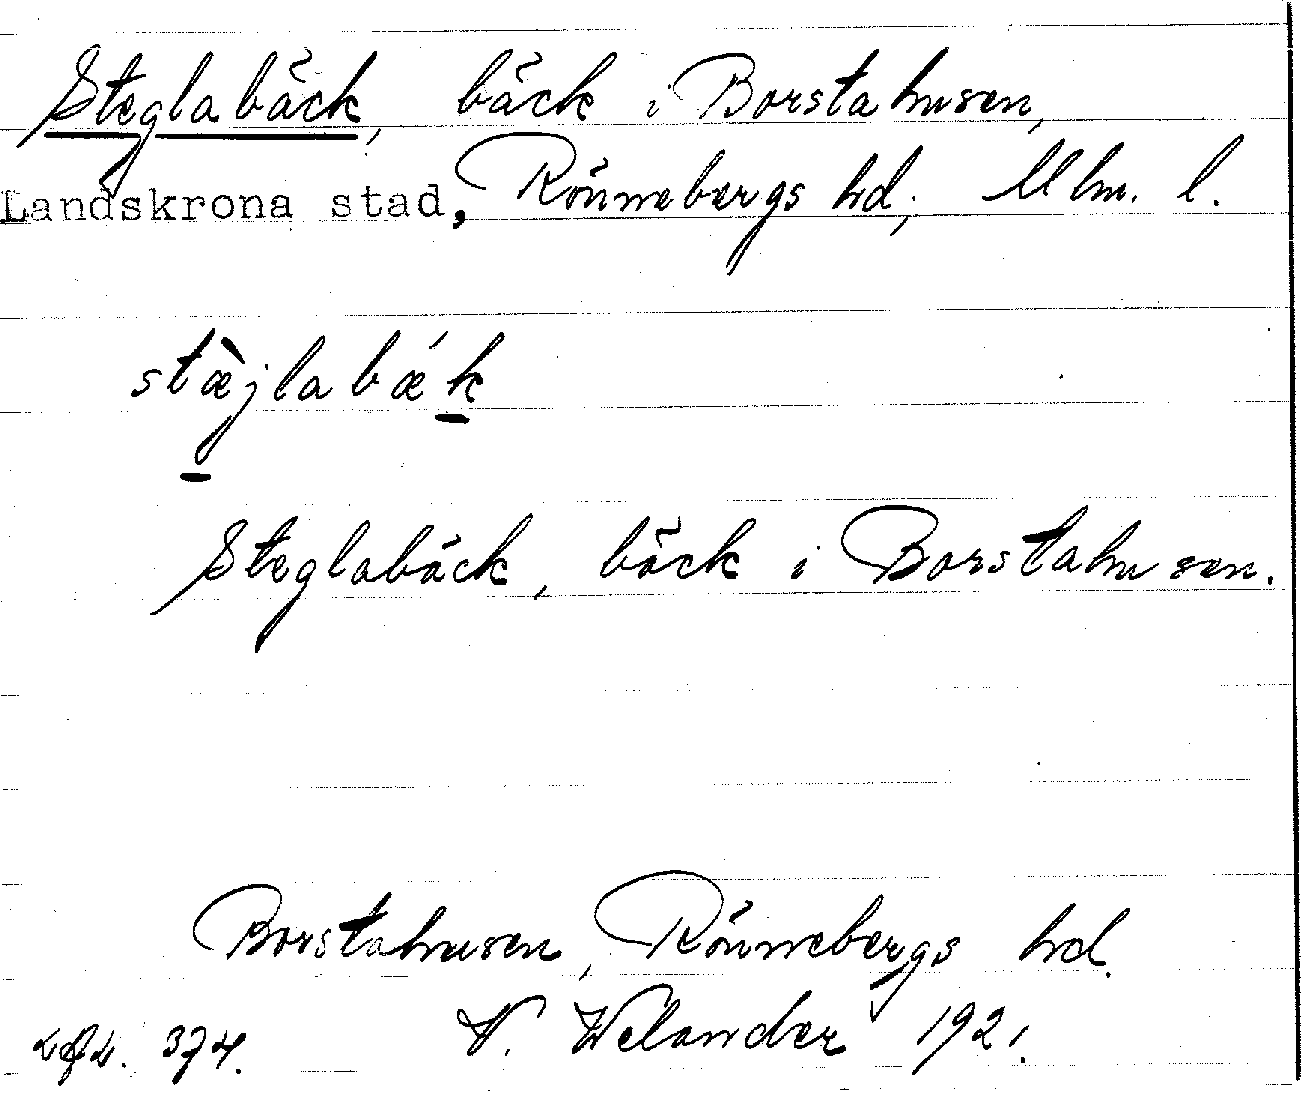 Steglabäck, bäck i Borstahusen,
Landskrona stad, Rönnebergs hd, Mlm. l.
stæ̀jlabǽk
Steglabäck, bäck i Borstahusen.
Borstahusen, Rönnebergs hd.
374. N. Welander 1921.